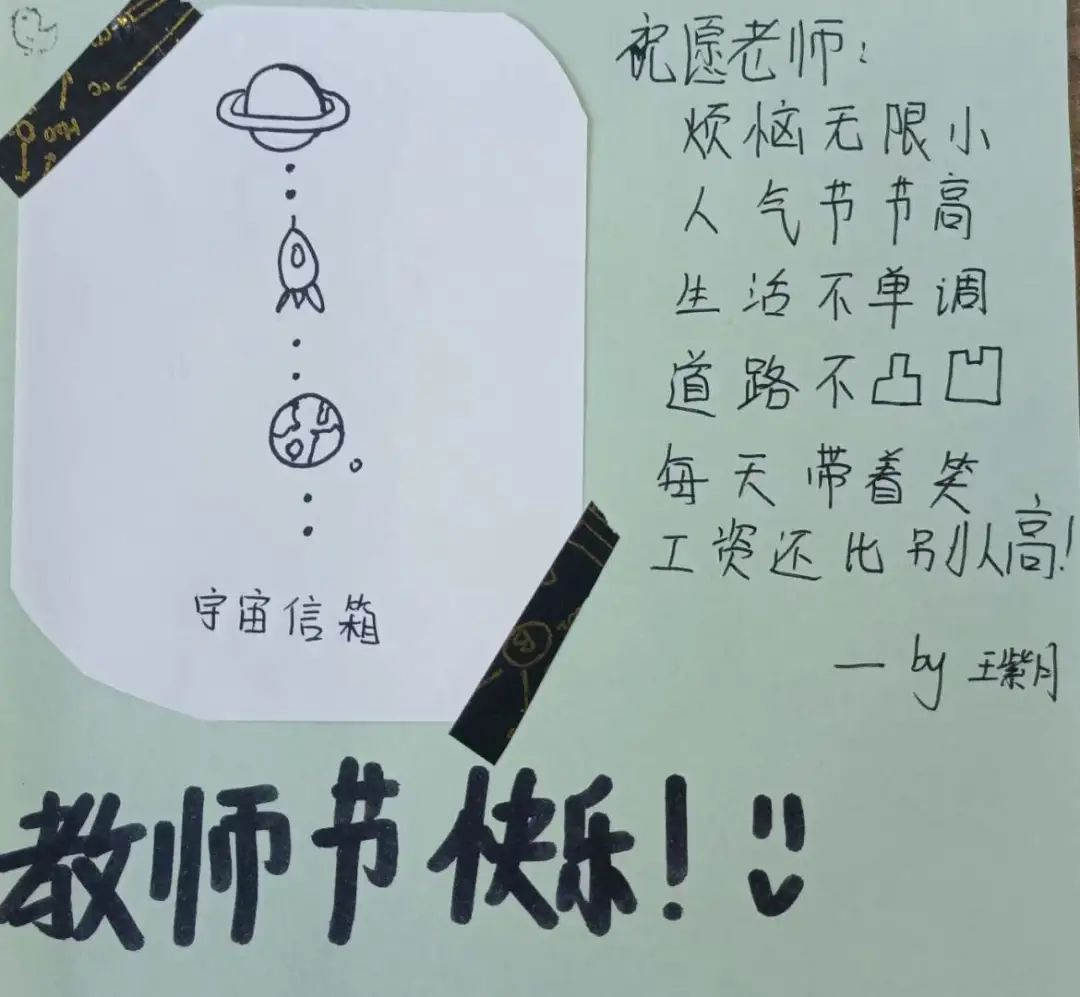 祝愿老师:
烦恼无限小
人气节节高
生活不单调
道路不凸凹
每天带着笑
工资还比别人高!
— by 王紫月
宇宙信箱
教师节快乐!